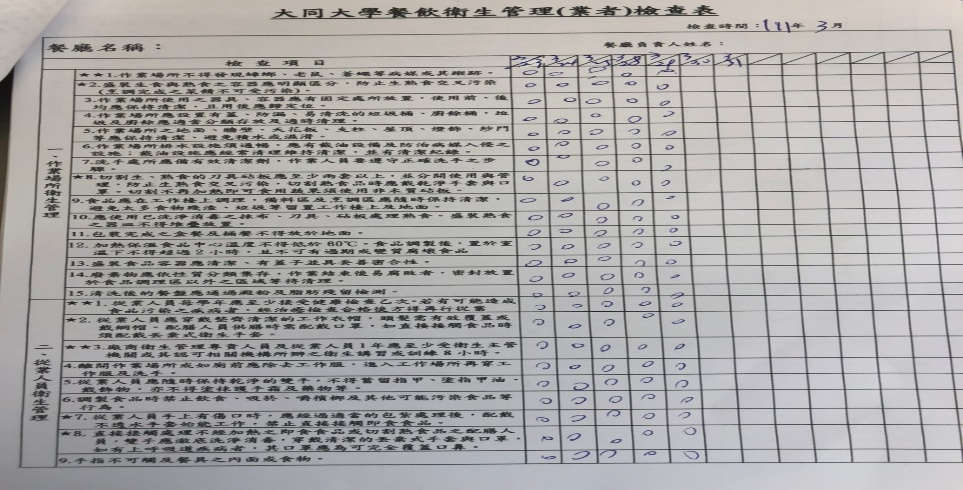 大同大學餐飲衛生管理(業者)檢查表
檢查時間：111年 3月
餐廳名稱：
餐廳負責人姓名：
檢 查 項 目
一、作業場所衛生管理
★★1.作業場所不得發現蟑螂、老鼠、蒼蠅等病媒或其蹤跡。
★2.盛裝生食與熟食之容器應明顯區分，防止生熟食交叉污染
(烹調完成之菜餚不可受污染)。
3.作業場所使用之器具、容器應有固定處所放置，使用前、後
均應保持清潔，且用後應歸定位。
4.作業場所應設置有蓋、防漏、易清洗的垃圾桶、廚餘桶，垃
圾及廚餘應適當分類存放及適時清理。
5.作業場所之地面、牆壁、天花板、支柱、屋頂、燈飾、紗門
等應保持清潔，避免積水或濕滑。
6.作業場所排水設施須通暢，應有截油設備及防治病媒入侵之
設施；截油設施應經常清理維持清潔，並有清潔紀錄。
7.洗手處所應備有效清潔劑，作業人員要遵守正確洗手之步
驟。
★8.切割生、熟食的刀具砧板應至少兩套以上，並分開使用與管
理，防止生熟食交叉污染，切割熟食品時應戴乾淨手套與口
罩，切割不再加熱即可食用蔬果須使用非木質砧板。
9.食品應在工作檯上調理，備料區及烹調區應隨時保持清潔，
避免太多食物殘渣、垃圾等留置工作檯上及地面。
10.應使用已洗淨消毒之抹布、刀具、砧板處理熟食。盛裝熟食
之器皿不得堆疊放置。
11.包裝完成之套餐及桶餐不得放於地面。
12.加熱保溫食品中心溫度不得低於60℃。食品調製後，置於室
溫下不得超過2小時，並不可有過期或變質腐壞食品
13.盛裝食品容器應清潔、有蓋子並具妥善密合性。
14.廢棄物應依性質分類集存，作業結束後易腐敗者，密封放置
於食品調理區以外之區域等待清理。
15.清洗後的餐盤應通過澱粉及脂肪殘留檢測。
二、從業人員衛生管理
★★1.從業人員每學年應至少接受健康檢查乙次。若有可能造成
食品污染之疾病者，經治療檢查合格後方得再行從業
★2.從業人員應穿戴整齊清潔的工作衣帽，頭髮需有效覆蓋或
戴網帽。配膳人員供膳時需配戴口罩，如直接接觸食品時
須配戴丟棄式衛生手套。
★★3.廠商衛生管理專責人員及從業人員1年應至少受衛生主管
機關或其認可相關機構所辦之衛生講習或訓練8小時。
4.離開作業場所或如廁前應除去工作服，進入工作場所再穿工
作服及洗手。
5.從業人員應隨時保持乾淨的雙手，不得蓄留指甲、塗指甲油、
戴飾物，亦不得塗抹護手霜及藥物等。
6.調製食品時禁止飲食、吸菸、嚼檳榔及其他可能污染食品等
行為。
★7.從業人員手上有傷口時，應經過適當的包紮處理後，配戴
不透水手套始能工作，禁止直接接觸即食食品。
★8.直接接觸處理不經加熱之即食食品或切割熟食品之配膳人
員，雙手應澈底洗淨消毒，穿戴清潔的丟棄式手套與口罩，
如有上呼吸道疾病者，其口罩應為可完全覆蓋口鼻。
9.手指不可觸及餐具之內面或食物。